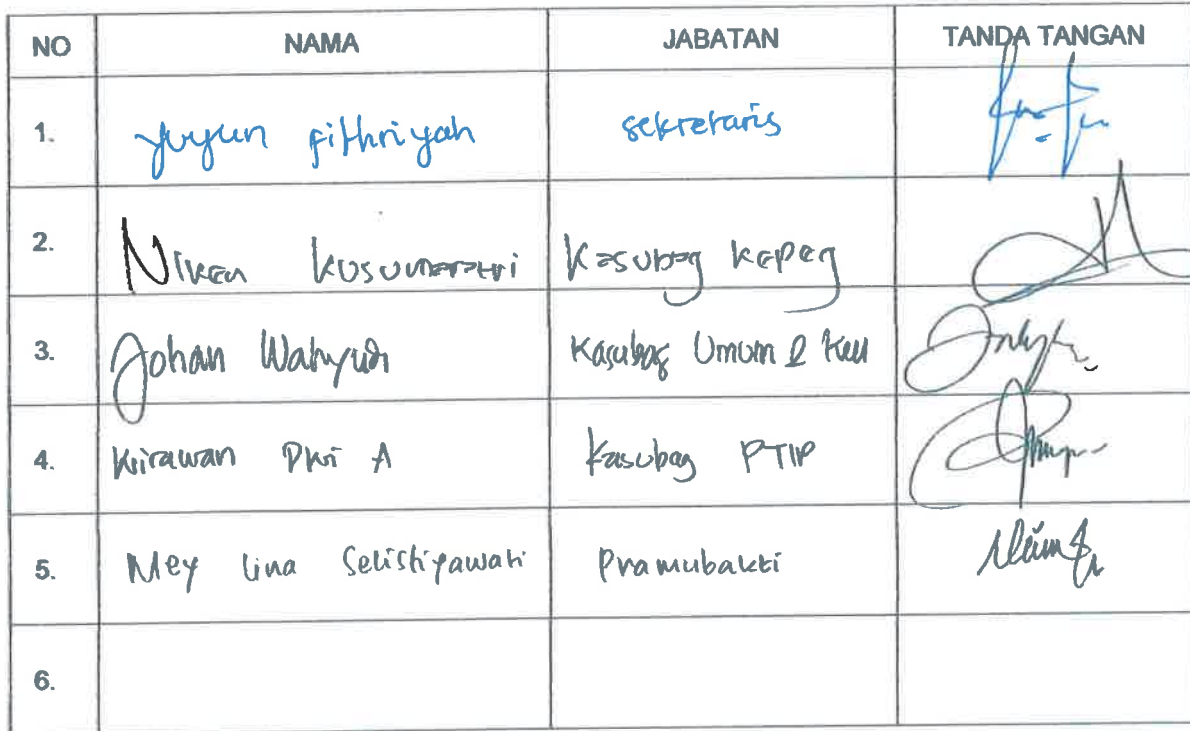 NO NAMA JABATAN TANDA TANGAN
1. Yuyun Fithriyah sekretaris
2. Niken Kusumaratri Kasubag kepeg
3. Johan Wahyudi Kasubag Umum & Keu
4. Kirawan Dwi A Kasubag PTIP
5. Mey Lina Selistiyawati Pramubakti
6.